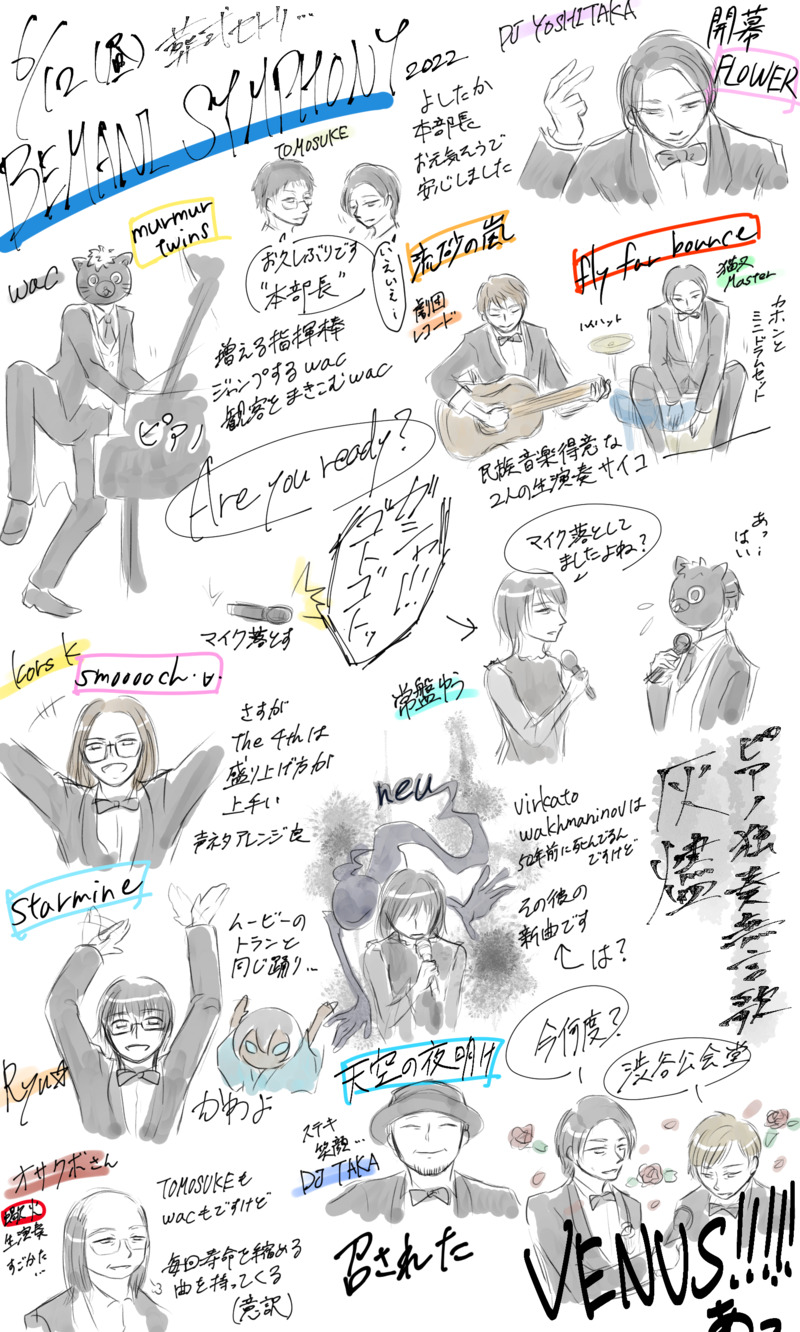 6/12(昼)
葬式セトリ…
BEMANI SYMPHONY
2022
DJ YOSHITAKA
開幕
FLOWER
よしたか
本部長
お元気そうで
安心しました
TOMOSUKE
お久しぶりです
"本部長"
いえいえ…
murmur
twins
wac
ピアノ
増える指揮棒
ジャンプするwac
観客をまきこむwac
Are you ready?
流砂の嵐
劇団
レコード
fly far bounce
猫叉
Master
ハイハット
カホンと
ミニドラムセット
民族音楽得意な
2人の生演奏サイコ
ガシャ!!!
ゴトゴトッ
マイク落とす
マイク落として
ましたよね?
あっ…
はい
常盤ゆう
kors k
smooooch・∀・
さすが
The 4thは
盛り上げ方が
上手い
声ネタアレンジ良
neu
virkato
wakhmaninovは
50年前に死んでるん
ですけど
その後の
新曲です
は?
ピアノ独奏無言歌
灰燼
starmine
ムービーの
トランと
同じ踊り…
Ryu☆
かわよ
天空の夜明け
ステキ
笑顔…
DJ TAKA
召された
今何度?
渋谷公会堂
VENUS!!!!!
あっ
オサクボさん
生演奏
すごかた…
TOMOSUKEも
wacもですけど
毎回寿命を縮める
曲を持ってくる
(意訳)